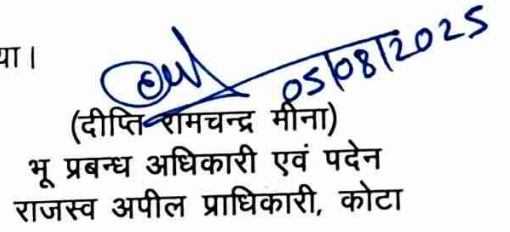 या।
05/08/2025
(दीप्ति रामचन्द्र मीना)
भू प्रबन्ध अधिकारी एवं पदेन
राजस्व अपील प्राधिकारी, कोटा